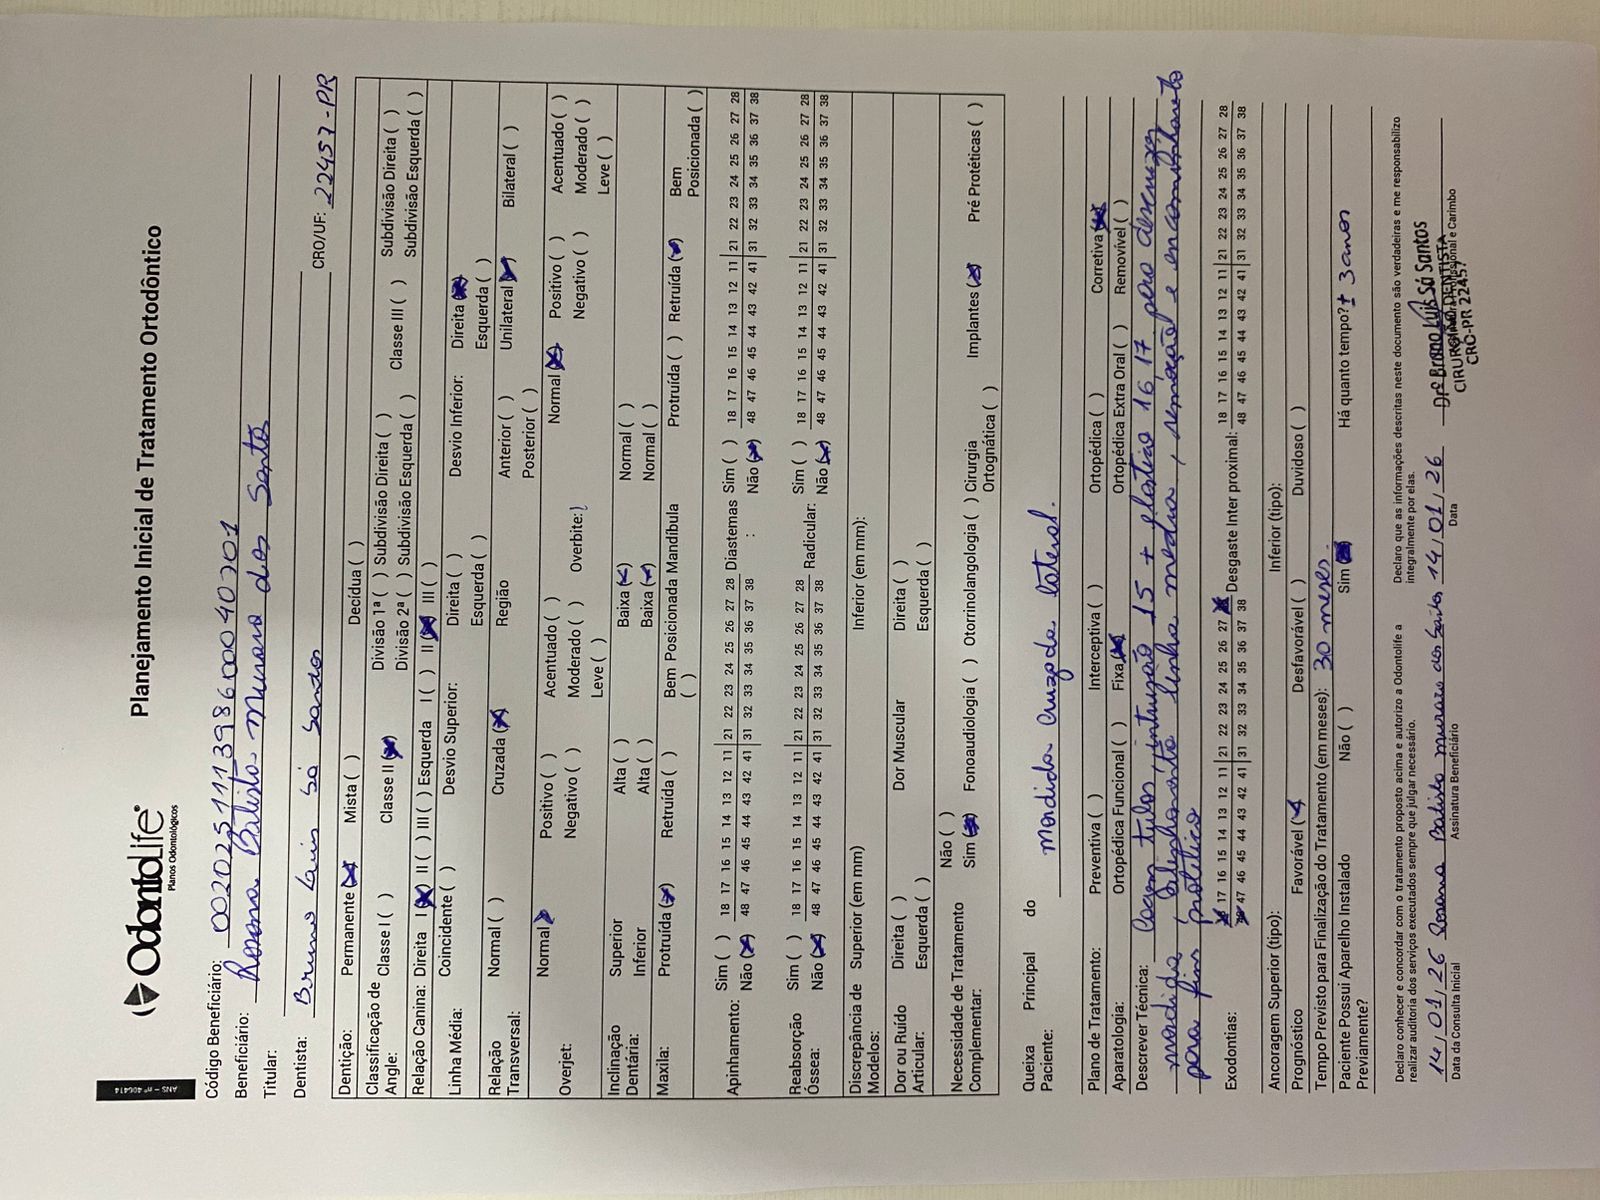 ANS - nº 406414
OdontoLife®
Planos Odontológicos
Planejamento Inicial de Tratamento Ortodôntico
Código Beneficiário: 002025111398600040201
Beneficiário: Rosana Batista Muraro dos Santos
Titular:
Dentista: Bruno Luis Sá Santos CRO/UF: 22457-PR
Dentição: Permanente (x) Mista ( ) Decídua ( )
Classificação de Angle: Classe I ( ) Classe II (x) Divisão 1ª ( ) Subdivisão Direita ( ) Classe III ( ) Subdivisão Direita ( )
Divisão 2ª ( ) Subdivisão Esquerda ( ) Subdivisão Esquerda ( )
Relação Canina: Direita I (x) II ( ) III ( ) Esquerda I ( ) II (x) III ( )
Linha Média: Coincidente ( ) Desvio Superior: Direita ( ) Desvio Inferior: Direita (x)
Esquerda ( ) Esquerda ( )
Relação Transversal: Normal ( ) Cruzada (x) Região Anterior ( ) Unilateral (x) Bilateral ( )
Posterior ( )
Overjet: Normal (x) Positivo ( ) Acentuado ( ) Overbite: Normal (x) Positivo ( ) Acentuado ( )
Negativo ( ) Moderado ( ) Negativo ( ) Moderado ( )
Leve ( ) Leve ( )
Inclinação Dentária: Superior Alta ( ) Baixa (x) Normal ( )
Inferior Alta ( ) Baixa (x) Normal ( )
Maxila: Protruída (x) Retruída ( ) Bem Posicionada ( ) Mandíbula Protruída ( ) Retruída (x) Bem Posicionada ( )
Apinhamento: Sim ( ) 18 17 16 15 14 13 12 11 | 21 22 23 24 25 26 27 28 Diastemas : Sim ( ) 18 17 16 15 14 13 12 11 | 21 22 23 24 25 26 27 28
Não (x) 48 47 46 45 44 43 42 41 | 31 32 33 34 35 36 37 38 Não (x) 48 47 46 45 44 43 42 41 | 31 32 33 34 35 36 37 38
Reabsorção Óssea: Sim ( ) 18 17 16 15 14 13 12 11 | 21 22 23 24 25 26 27 28 Radicular: Sim ( ) 18 17 16 15 14 13 12 11 | 21 22 23 24 25 26 27 28
Não (x) 48 47 46 45 44 43 42 41 | 31 32 33 34 35 36 37 38 Não (x) 48 47 46 45 44 43 42 41 | 31 32 33 34 35 36 37 38
Discrepância de Modelos: Superior (em mm) Inferior (em mm):
Dor ou Ruído Articular: Direita ( ) Dor Muscular Direita ( )
Esquerda ( ) Esquerda ( )
Necessidade de Tratamento Complementar: Não ( )
Sim (x) Fonoaudiologia ( ) Otorrinolangologia ( ) Cirurgia Ortognática ( ) Implantes (x) Pré Protéticas ( )
Queixa Principal do Paciente: mordida cruzada lateral.
Plano de Tratamento: Preventiva ( ) Interceptiva ( ) Ortopédica ( ) Corretiva (x)
Aparatologia: Ortopédica Funcional ( ) Fixa (x) Ortopédica Extra Oral ( ) Removível ( )
Descrever Técnica: 15 + elástico 16, 17 para descruzar
mordida, linha média, e encaminhamento
para fins protético
Exodontias: 18 17 16 15 14 13 12 11 | 21 22 23 24 25 26 27 28 Desgaste Inter proximal: 18 17 16 15 14 13 12 11 | 21 22 23 24 25 26 27 28
48 47 46 45 44 43 42 41 | 31 32 33 34 35 36 37 38 48 47 46 45 44 43 42 41 | 31 32 33 34 35 36 37 38
Ancoragem Superior (tipo): Inferior (tipo):
Prognóstico Favorável (x) Desfavorável ( ) Duvidoso ( )
Tempo Previsto para Finalização do Tratamento (em meses): 30 meses.
Paciente Possui Aparelho Instalado Previamente? Não ( ) Sim (x) Há quanto tempo? ± 3 anos
Declaro conhecer e concordar com o tratamento proposto acima e autorizo a Odontolife a
realizar auditoria dos serviços executados sempre que julgar necessário.
Declaro que as informações descritas neste documento são verdadeiras e me responsabilizo
integralmente por elas.
14/01/26 Rosana Batista Muraro dos Santos 14/01/26
Data da Consulta Inicial Assinatura Beneficiário Data Assinatura Profissional e Carimbo
Drº Bruno Luis Sá Santos
CIRURGIÃO DENTISTA
CRO-PR 22457